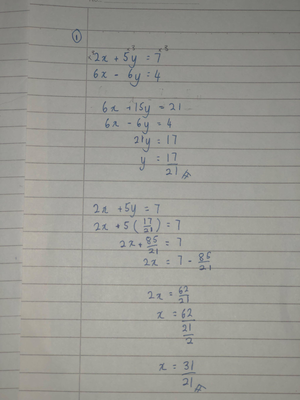 ①
2x + 5y = 7
6x - 6y = 4
6x + 15y = 21
6x - 6y = 4
21y = 17
y = 17/21
2x + 5y = 7
2x + 5(17/21) = 7
2x + 85/21 = 7
2x = 7 - 85/21
2x = 62/21
x = 62/21/2
x = 31/21